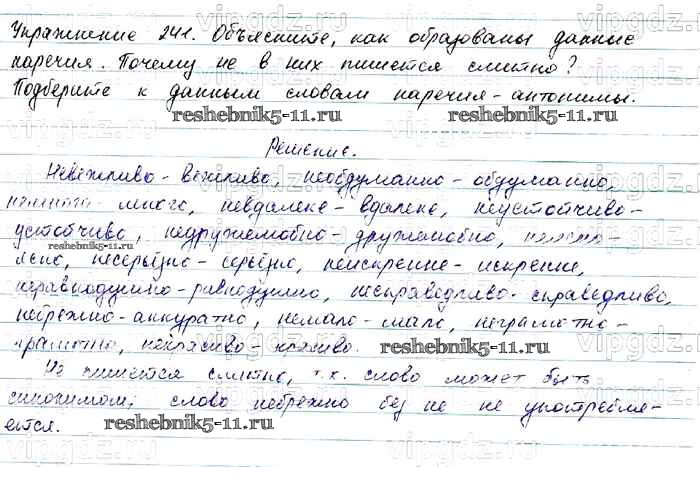 Упражнение 241. Объясните, как образованы данные
наречия. Почему не в них пишется слитно?
Подберите к данным словам наречия-антонимы.
reshebnik5-11.ru
Решение.
Невежливо - вежливо, необдуманно - обдуманно,
много, невдалеке - вдалеке, неустойчиво -
устойчиво, недружелюбно - дружелюбно,
reshebnik5-11.ru
несерьёзно - серьёзно, неискренне - искренне,
неравнодушно - равнодушно, несправедливо - справедливо,
небрежно - аккуратно, немало - мало, неграмотно -
грамотно, некрасиво - красиво. reshebnik5-11.ru
Не пишется слитно, т.к. слово может быть
синонимом, слово небрежно без не не употребля-
ется. reshebnik5-11.ru
vipgdz.ru